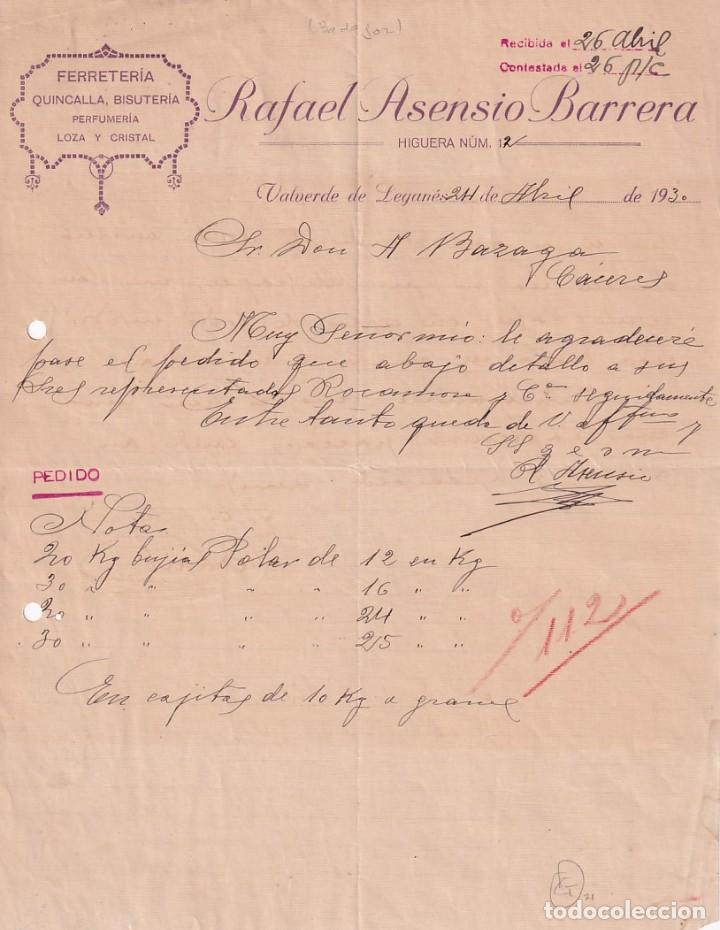 (Badajoz)
Recibida el 26 Abril
Contestada el 26 p/c
FERRETERÍA
QUINCALLA, BISUTERÍA
PERFUMERÍA
LOZA Y CRISTAL
Rafael Asensio Barrera
HIGUERA NÚM. 12
Valverde de Leganés 24 de Abril de 1930
Sr. Don A Bazaga
Cáceres
Muy Señor mio: le agradeceré
pase el pedido que abajo detallo a sus
Sres representados Rocamora y Cª seguidamente
Entre tanto queda de V. affmo y
SS q e s m
R Asensio
PEDIDO
Nota
20 Kg bujias Polar de 12 en Kg
30 " " " " 16 " "
20 " " " " 24 " "
30 " " " " 25 " "
En cajitas de 10 Kg a granel
112
21
todocoleccion.net